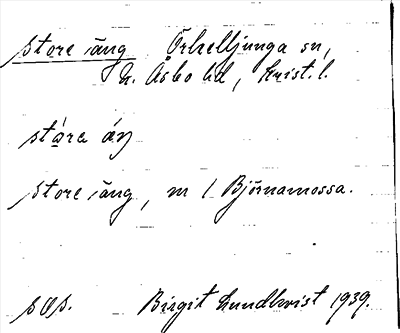 store äng Örkelljunga sn,
N. Åsbo hd, Krist. l.
stɑ̀re áŋ
store äng, m / Björnamossa.
sOs. Birgit Lundkvist 1939.